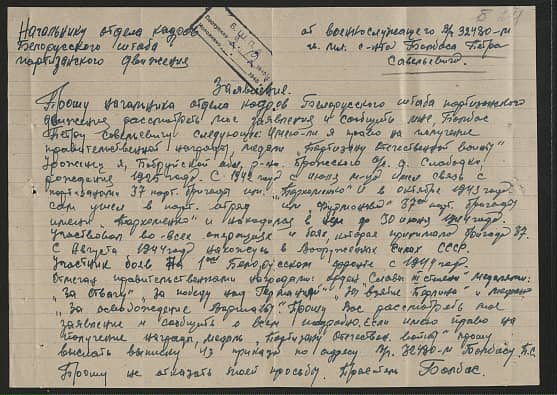 Начальнику отдела кадров
Белорусского штаба
партизанского движения
от военнослужащего в/ч 32480-м
гв. мл. с-та Болбаса Петра
Савельевича.
Заявление.
Прошу начальника отдела кадров Белорусского штаба партизанского
движения рассмотреть мое заявление и сообщить мне, Болбас
Петру Савельевичу следующее: Имею-ли я право на получение
правительственной награды, медали „Партизану Отечественной войны"
Уроженец я, Бобруйской обл., р-на д. Слободка
рождения 1925 года. С 1942 года с июня м-ца имел связь с
партизанами 37 парт. бригада им. „Пархоменко" и в октябре 1943 года
сам ушел в парт. отряд им. 37ой парт. бригады
имени „Пархоменко" и находился в нем до 30 июня 1944 года.
Участвовал во-всех операциях и боях, которая принимала бригада 37.
С Августа 1944 года нахожусь в Вооруженных Силах СССР.
Участник боев на 1ом Белорусском фронте с 1944 года.
Отмечен правительственными наградами: орден Славы III степени медалями:
„За Отвагу" „За победу над Германией" „За взятие Берлина" и медалью
„За освобождение Варшавы" Прошу Вас рассмотреть мое
заявление и сообщить о всем подробно. Если имею право на
получение награды, медаль „Партизану Отечествен. войны" прошу
выслать выписку из приказа по адресу в/ч. 32480-м Болбасу П.С.
Прошу не отказать моей просьбе. Проситель Болбас.